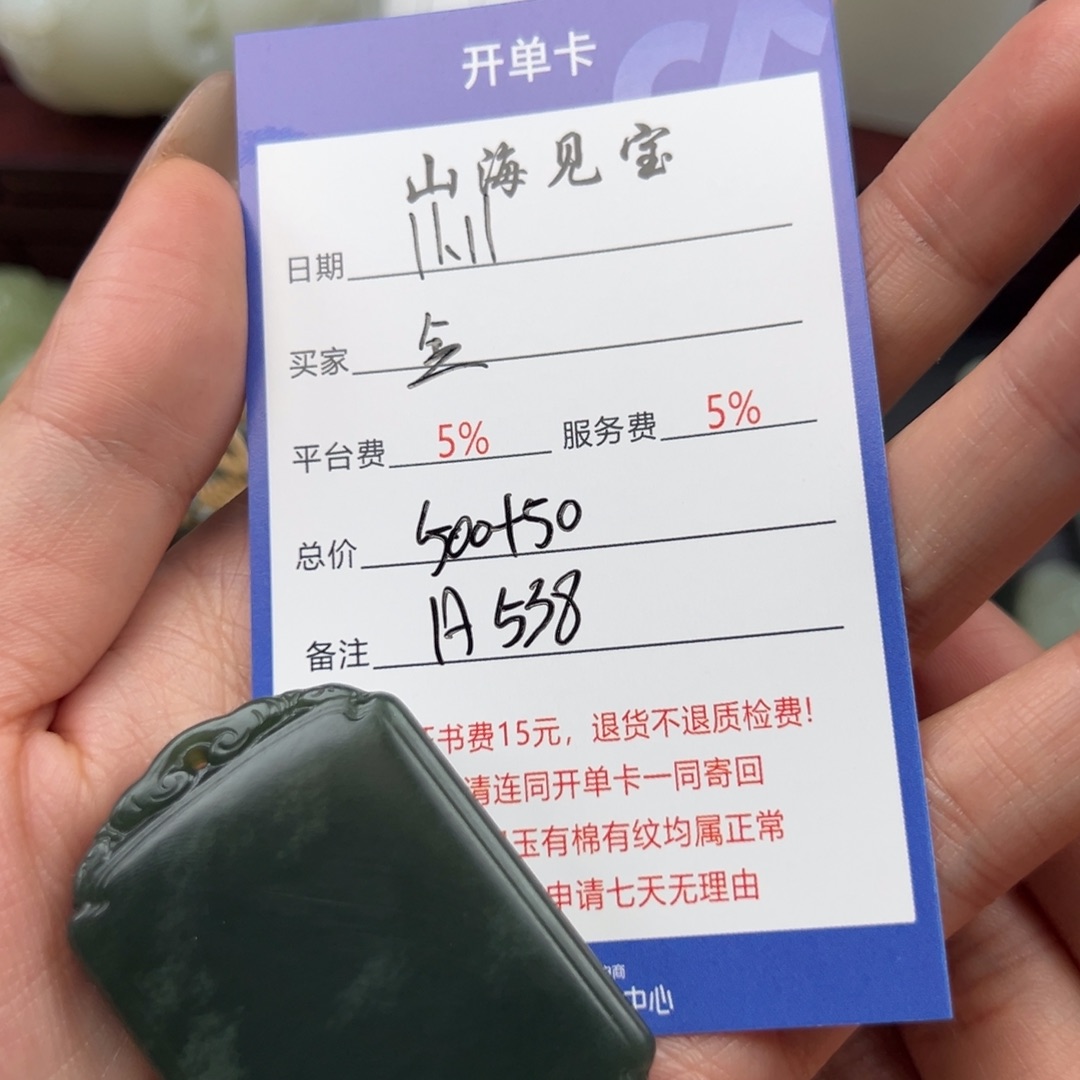 开单卡
山海见宝
日期 11.11
买家 金
平台费 5% 服务费 5%
总价 500+50
备注 A538
书费15元，退货不退质检费！
请连同开单卡一同寄回
玉有棉有纹均属正常
申请七天无理由
商
中心